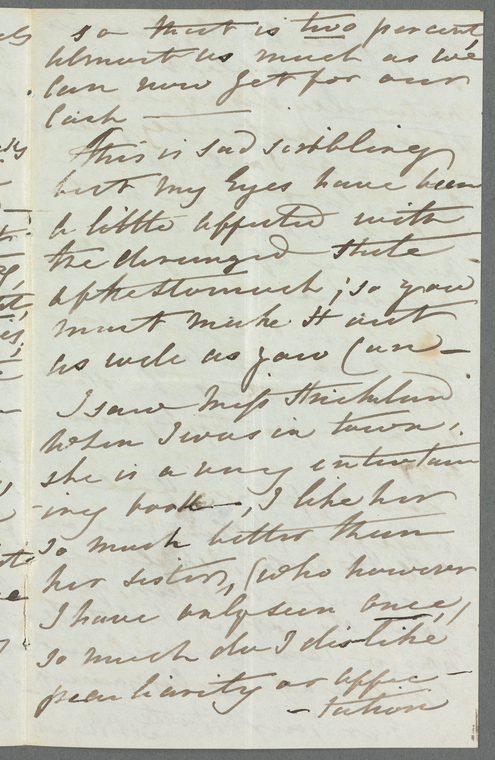 so that is two per cent
almost as much as we
can now get for our
Cash —
This is sad scribbling
but my Eyes have been
a little affected with
the deranged State
of the stomach; so you
must make it out
as well as you Can —
I saw Miss Strickland
when I was in town,
she is a very entertain
ing book, I like her
so much better than
her sister, (who however
I have only seen once,)
so much do I dislike
peculiarity or affec-
-tation